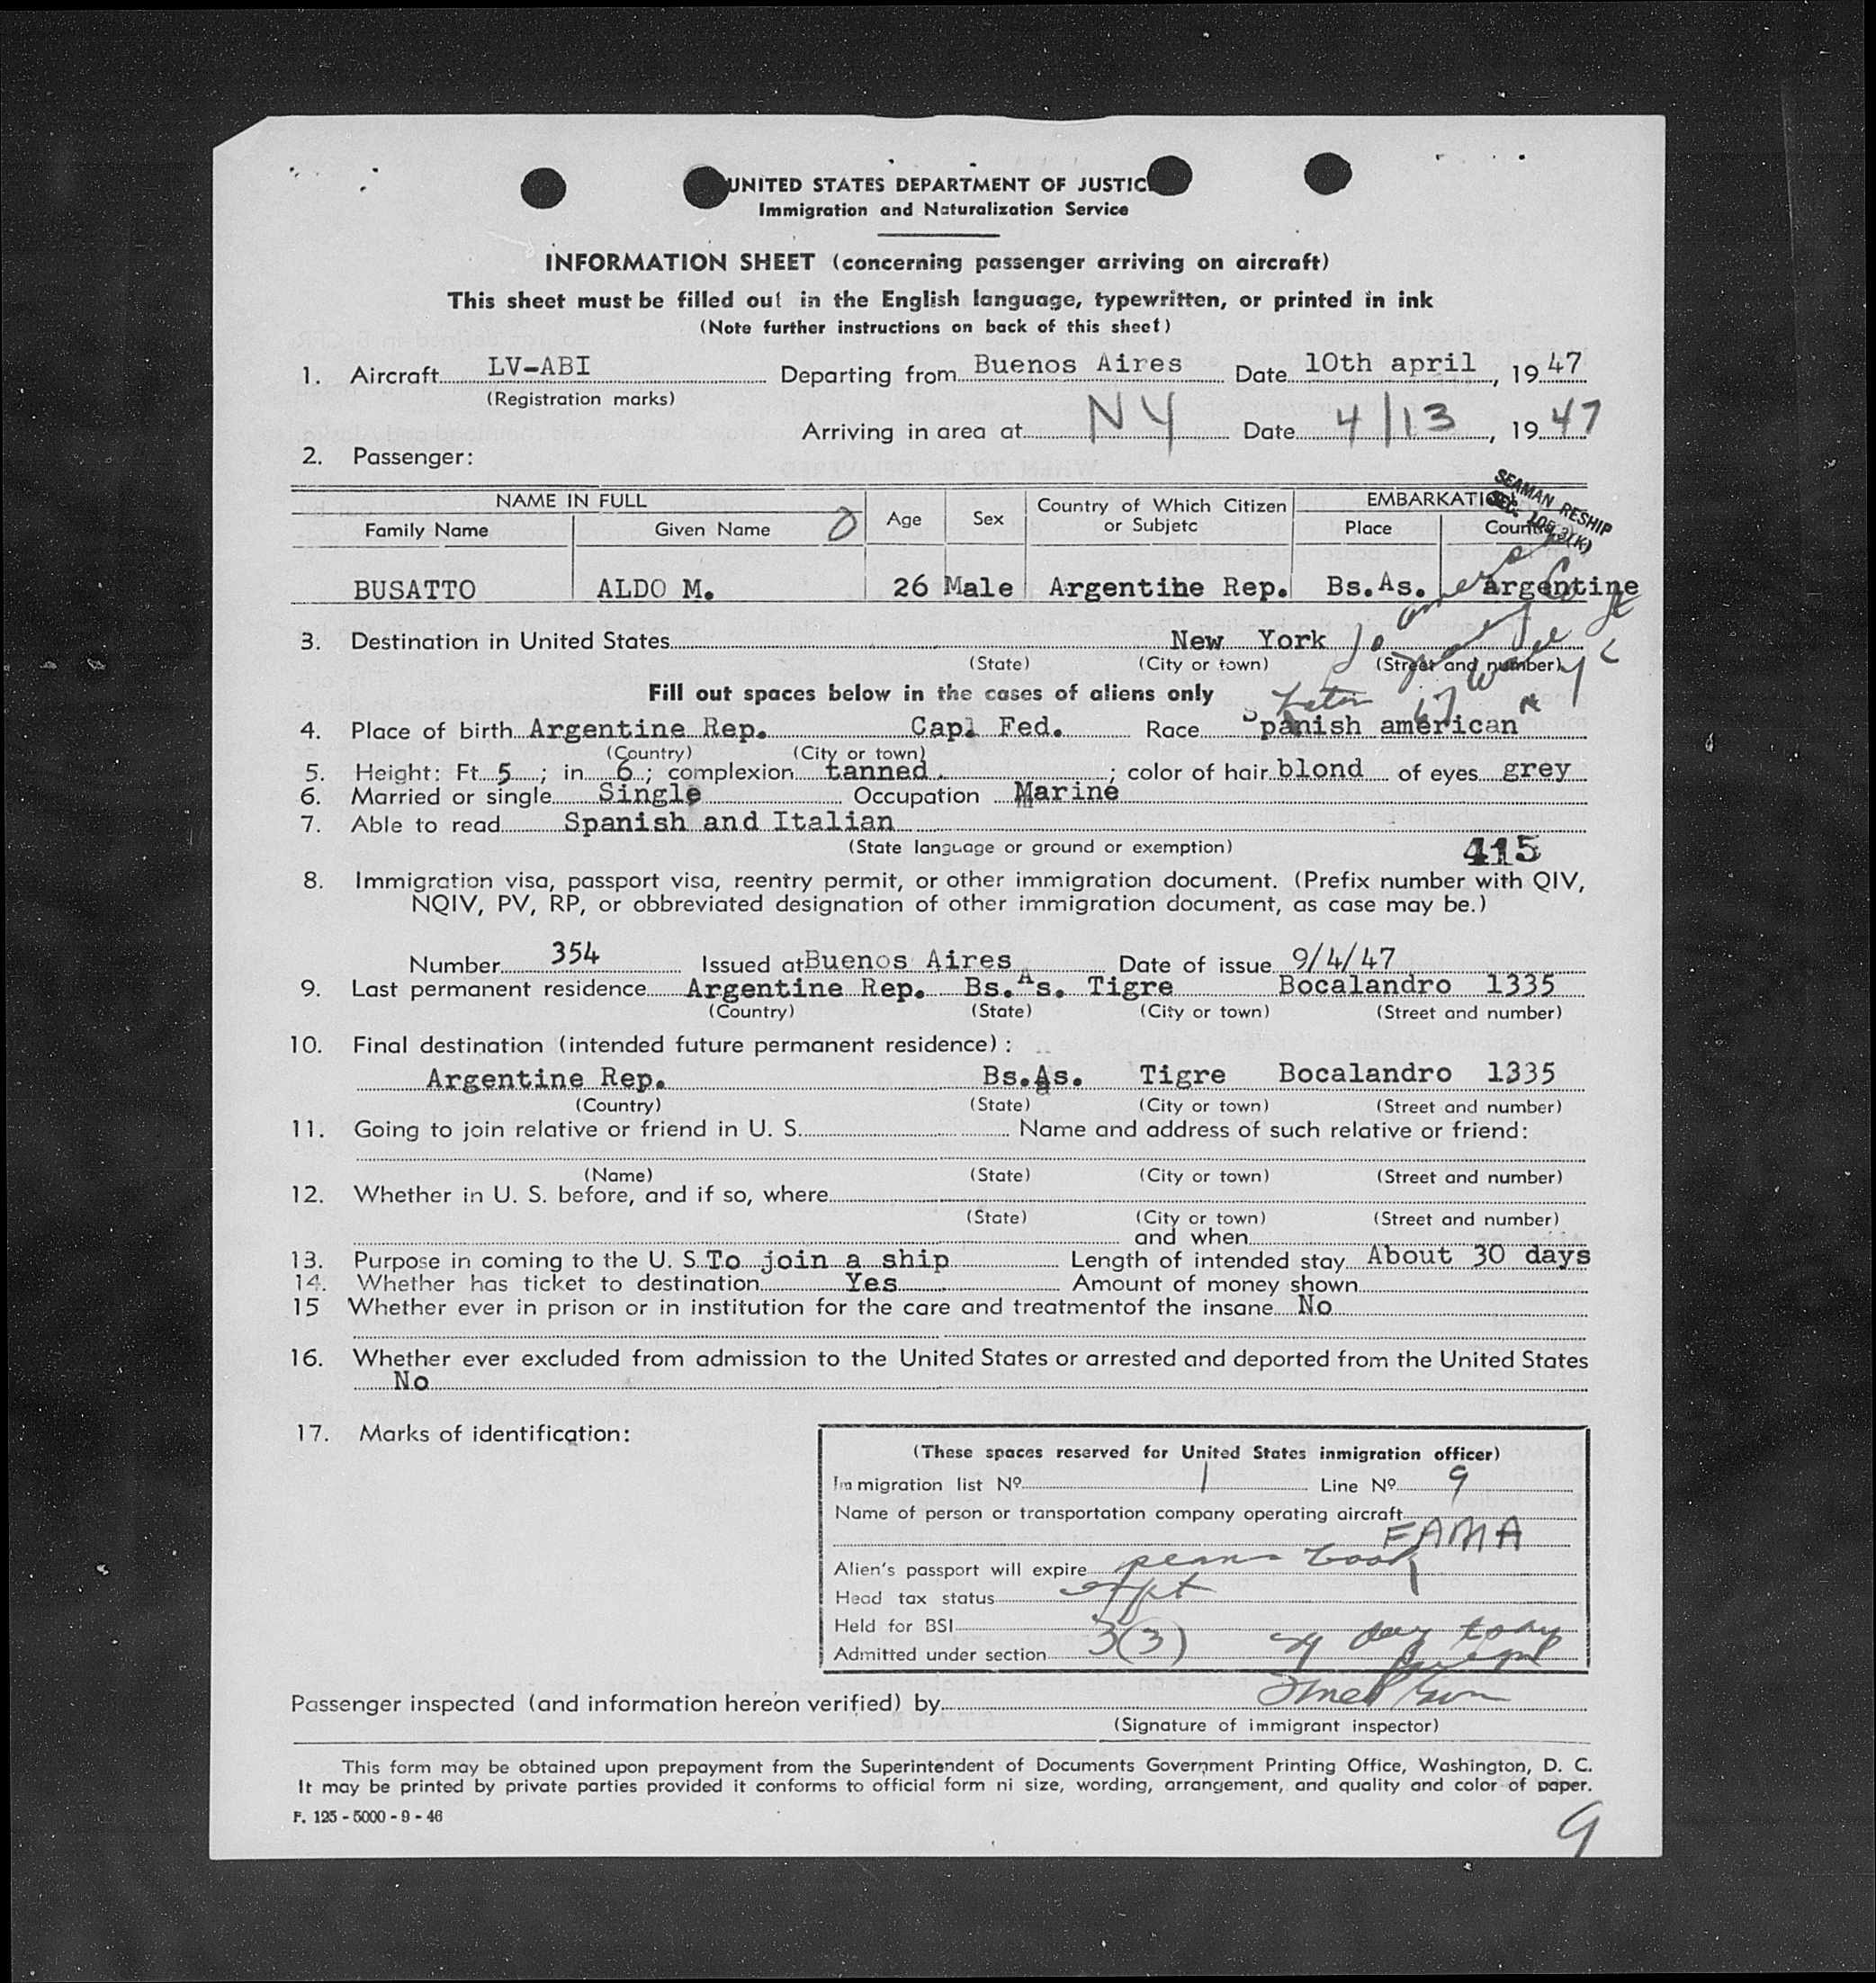 UNITED STATES DEPARTMENT OF JUSTIC
Immigration and Naturalization Service
INFORMATION SHEET (concerning passenger arriving on aircraft)
This sheet must be filled out in the English language, typewritten, or printed in ink
(Note further instructions on back of this sheet)
1. Aircraft LV-ABI Departing from Buenos Aires Date 10th april, 1947
(Registration marks)
Arriving in area at NY Date 4/13, 1947
2. Passenger:
SEAMAN RESHIP
NAME IN FULL Age Sex Country of Which Citizen or Subjetc EMBARKATI
Family Name Given Name O Place Count
BUSATTO ALDO M. 26 Male Argentine Rep. Bs.As. argentine
3. Destination in United States New York
(State) (City or town) (Street and number)
Fill out spaces below in the cases of aliens only
4. Place of birth Argentine Rep. Cap. Fed. Race Spanish american
(Country) (City or town)
5. Height: Ft. 5; in 6; complexion tanned.; color of hair blond of eyes grey
6. Married or single Single Occupation Marine
7. Able to read Spanish and Italian
(State language or ground or exemption) 415
8. Immigration visa, passport visa, reentry permit, or other immigration document. (Prefix number with QIV,
NQIV, PV, RP, or obbreviated designation of other immigration document, as case may be.)
Number 354 Issued at Buenos Aires Date of issue 9/4/47
9. Last permanent residence Argentine Rep. Bs.As. Tigre Bocalandro 1335
(Country) (State) (City or town) (Street and number)
10. Final destination (intended future permanent residence):
Argentine Rep. Bs.As. Tigre Bocalandro 1335
(Country) (State) (City or town) (Street and number)
11. Going to join relative or friend in U. S. Name and address of such relative or friend:
(Name) (State) (City or town) (Street and number)
12. Whether in U. S. before, and if so, where
(State) (City or town) (Street and number)
and when
13. Purpose in coming to the U. S. To join a ship Length of intended stay About 30 days
14. Whether has ticket to destination Yes Amount of money shown
15 Whether ever in prison or in institution for the care and treatmentof the insane No
16. Whether ever excluded from admission to the United States or arrested and deported from the United States
No
17. Marks of identification:
(These spaces reserved for United States inmigration officer)
Immigration list Nº 1 Line Nº 9
Name of person or transportation company operating aircraft
FAMA
Alien's passport will expire book
Head tax status
Held for BSI
Admitted under section 3(3)
Passenger inspected (and information hereon verified) by
(Signature of immigrant inspector)
This form may be obtained upon prepayment from the Superintendent of Documents Government Printing Office, Washington, D. C.
It may be printed by private parties provided it conforms to official form ni size, wording, arrangement, and quality and color of paper.
F. 125 - 5000 - 9 - 46
9